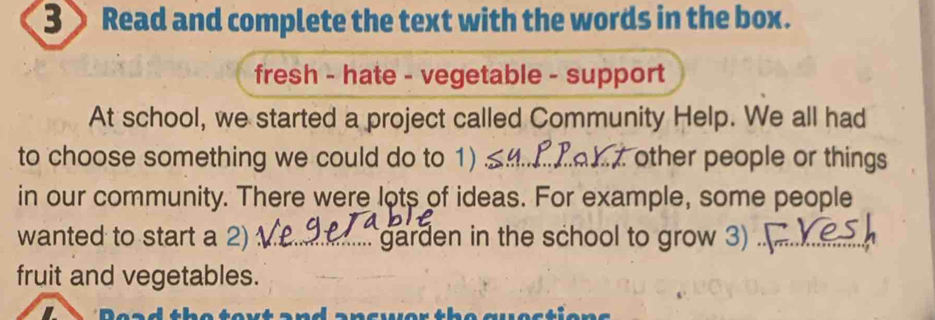 3 Read and complete the text with the words in the box.
fresh - hate - vegetable - support
At school, we started a project called Community Help. We all had
to choose something we could do to 1) support other people or things
in our community. There were lots of ideas. For example, some people
wanted to start a 2) vegetable garden in the school to grow 3) Fresh
fruit and vegetables.
Read the text and answer the questions